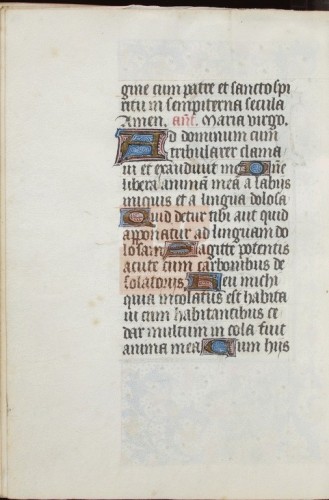 gine cum patre et sancto spi
ritu in sempiterna secula
Amen. añt. Maria virgo.
Ad dominum cum
tribularer clama
ui et exaudiuit me Dñe
libera animã mea a labijs
iniquis et a lingua dolosa
Quid detur tibi aut quid
apponatur ad linguam do
losam Sagitte potentis
acute cum carbonibus de
solatorijs. Heu michi
quia incolatus est habita
ui cum habitantibus ce
dar multum in cola fuit
anima mea Cum hijs